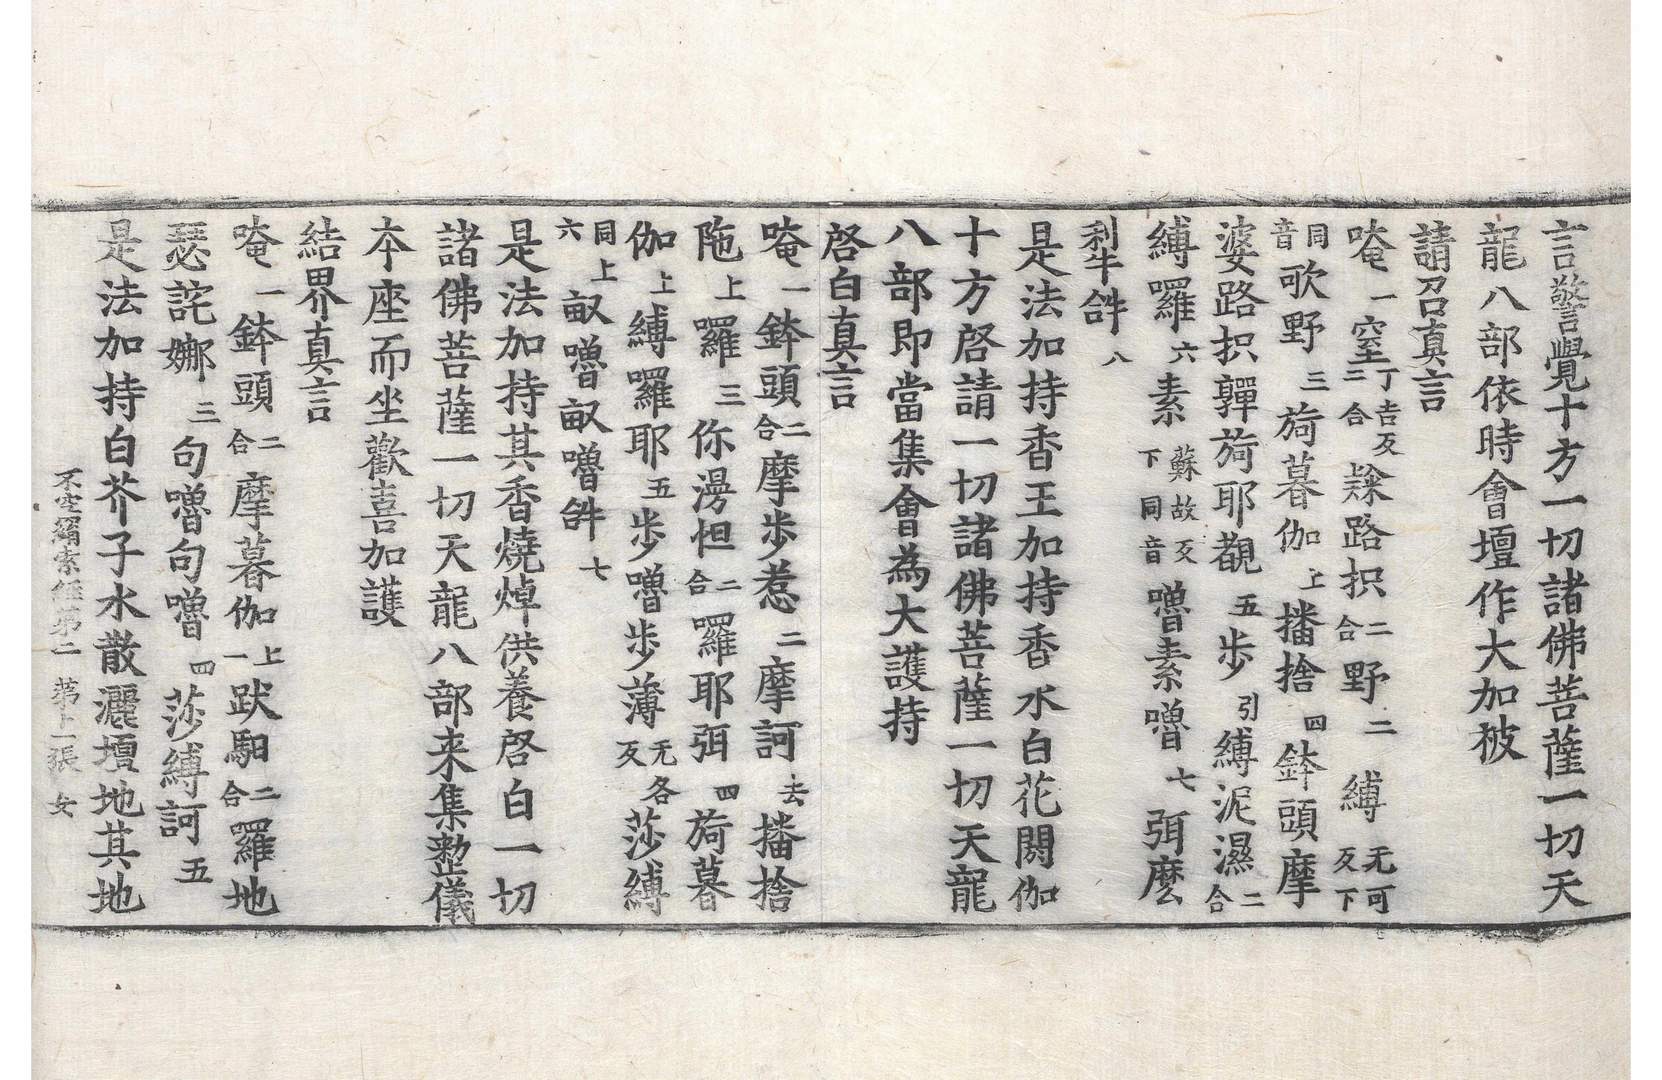 言警覺十方一切諸佛菩薩一切天
龍八部依時會壇作大加被
請召真言
唵一窒丁吉反二合㘑路抧二合野二縛无可反下
同音歌野三旖暮伽上播捨四鉢頭摩
婆路抧䫂旖耶覩五步引縛泥濕二合
縛囉六素蘇故反下同音嚕素嚕七弭麽
利𤙖八
是法加持香王加持香水白花閼伽
十方啓請一切諸佛菩薩一切天龍
八部即當集會為大護持
啓白真言
唵一鉢頭二合摩步惹二摩訶去播捨
陁上囉三你㗈怛二合囉耶弭四旖暮
伽上縛囉耶五步嚕步薄无各反莎縛
同上六㽃嚕㽃嚕𤙖七
是法加持其香燒焯供養啓白一切
諸佛菩薩一切天龍八部来集整儀
夲座而坐歡喜加護
結界真言
唵一鉢頭二合摩暮伽上一跋馹二合羅地
瑟詫娜三句嚕句嚕四莎縛訶五
是法加持白芥子水散灑壇地其地
不空羂索經第二 第上張 女